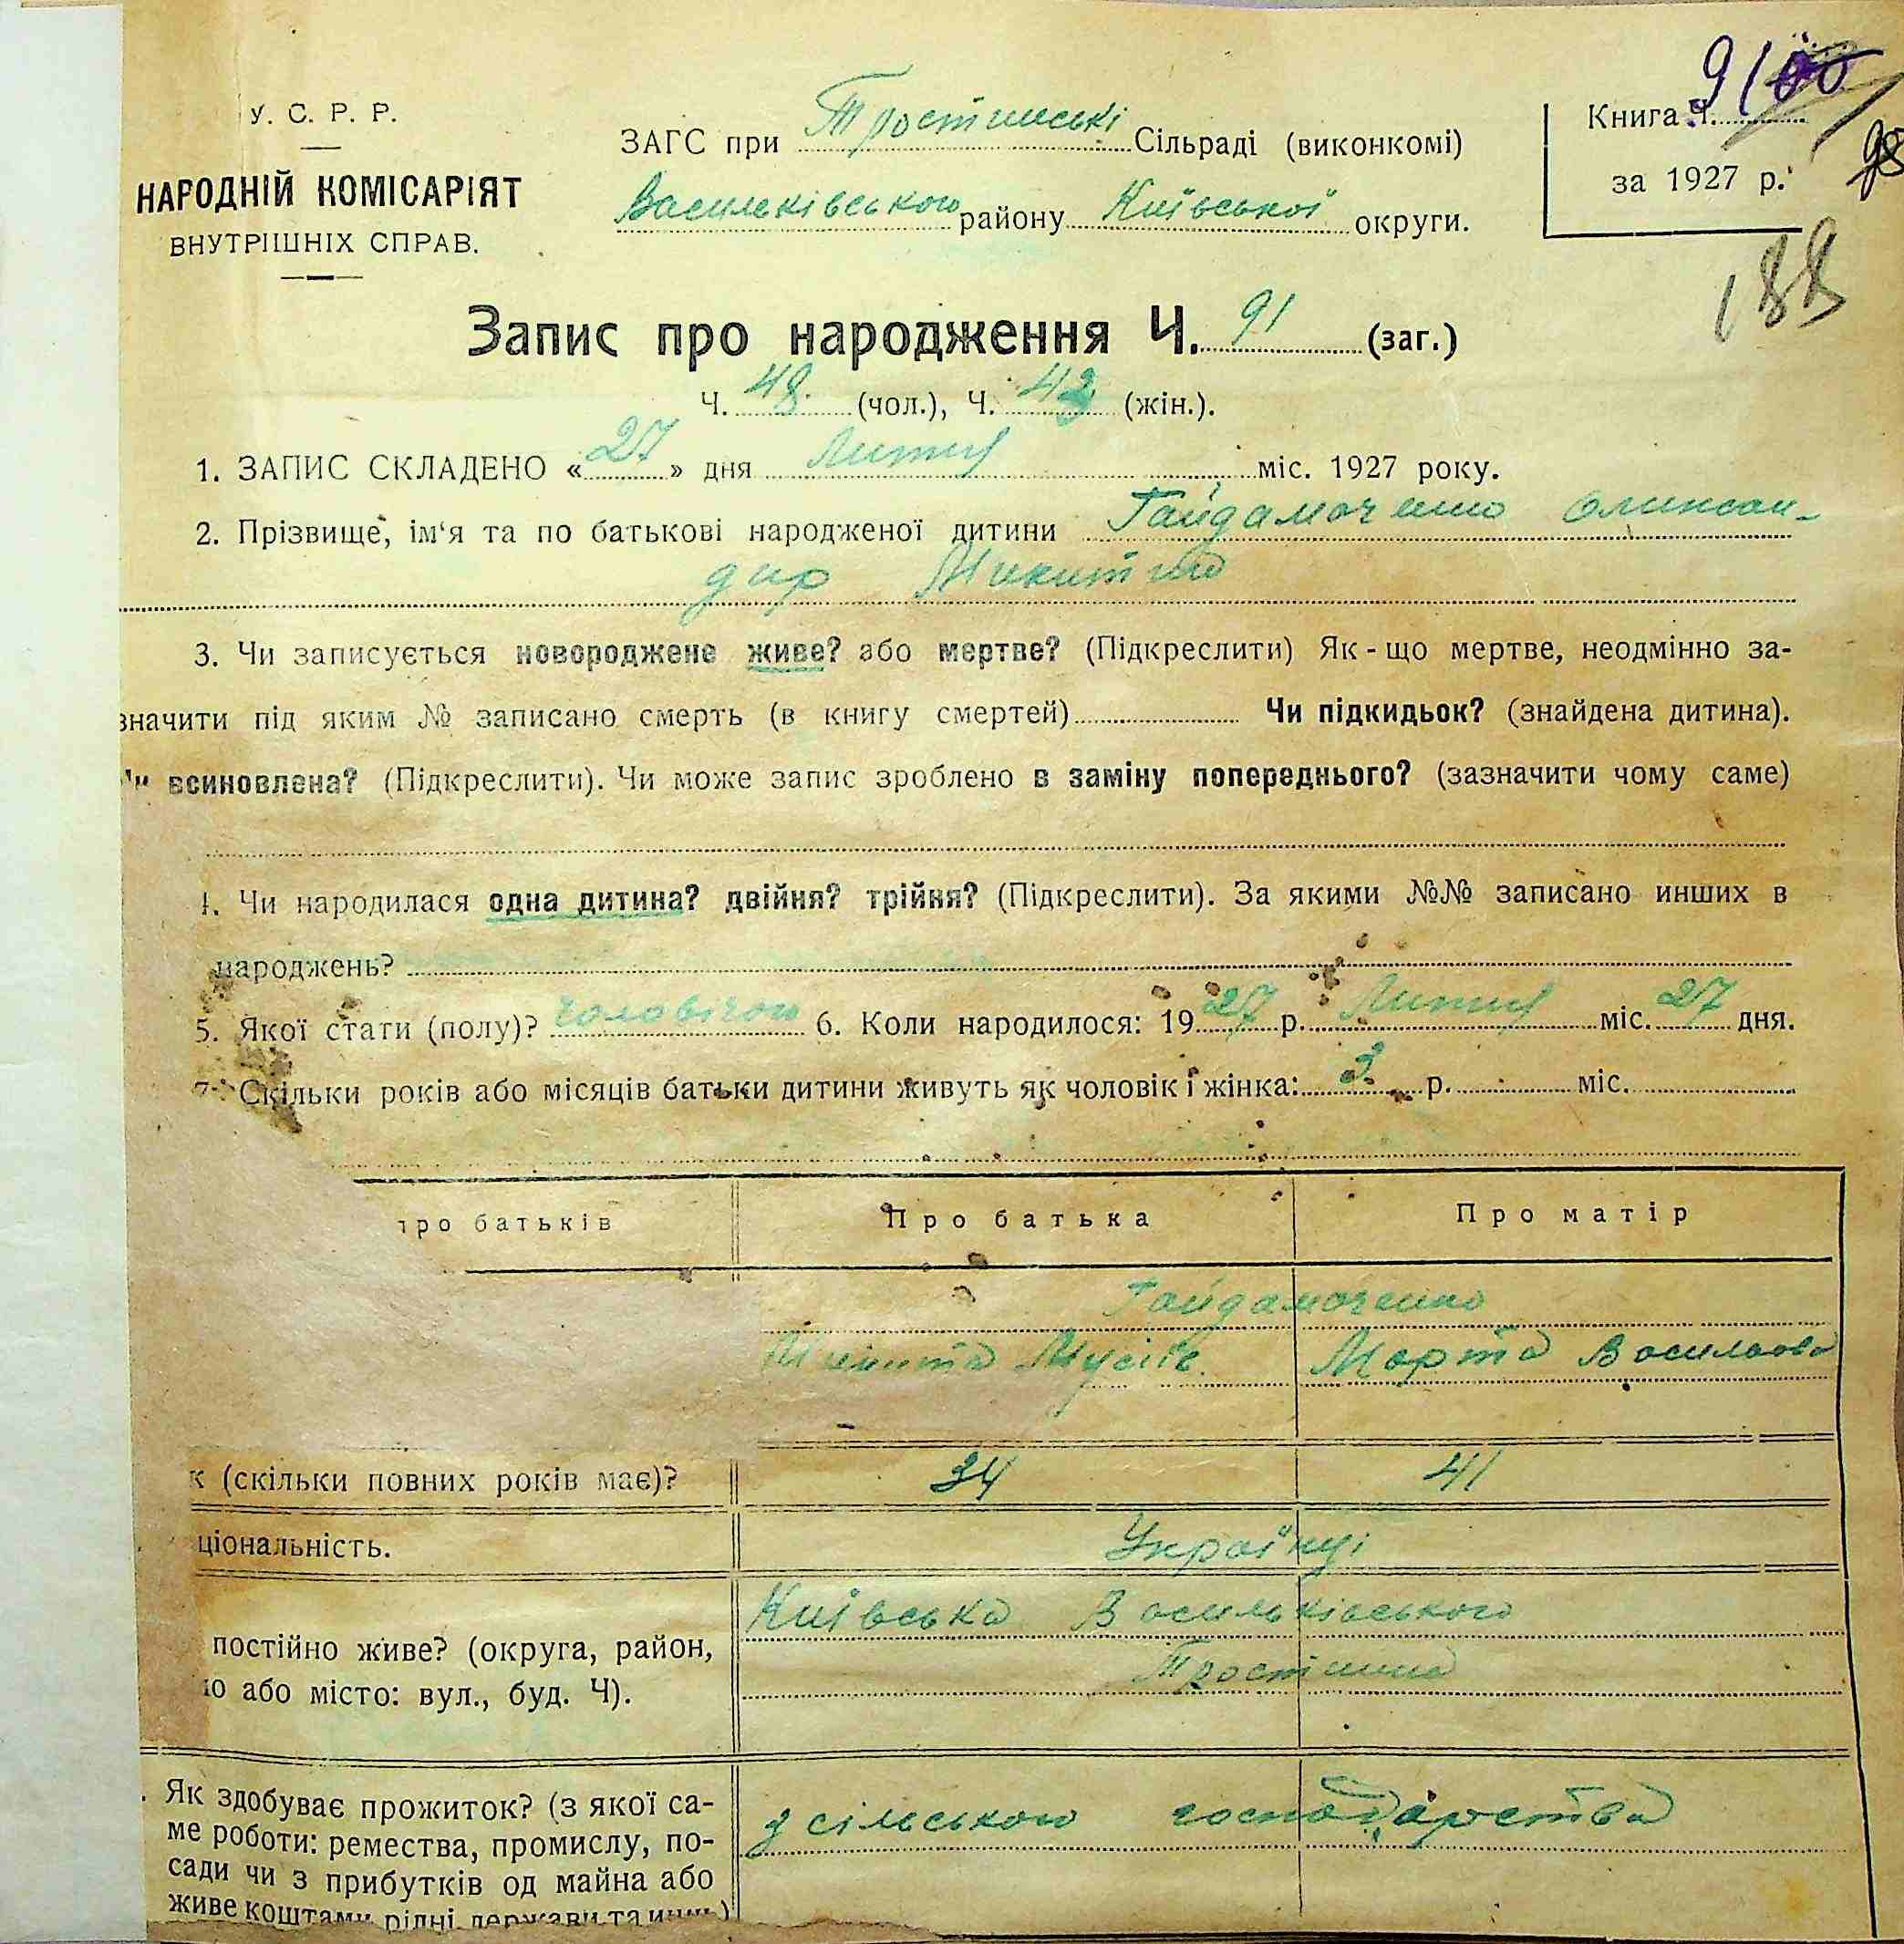 У. С. Р. Р.
НАРОДНІЙ КОМІСАРІЯТ
ВНУТРІШНІХ СПРАВ.
ЗАГС при Тростинські Сільраді (виконкомі)
Василеківського району Київської округи.
Книга Ч. 9
за 1927 р.
188
Запис про народження Ч. 91 (заг.)
Ч. 48 (чол.), Ч. 43 (жін.).
1. ЗАПИС СКЛАДЕНО «27» дня Лютий міс. 1927 року.
2. Прізвище, ім'я та по батькові народженої дитини Гайдамаченко Оликсан-
дир Микитин
3. Чи записується новороджене живе? або мертве? (Підкреслити) Як-що мертве, неодмінно за-
значити під яким № записано смерть (в книгу смертей) Чи підкидьок? (знайдена дитина).
Чи всиновлена? (Підкреслити). Чи може запис зроблено в заміну попереднього? (зазначити чому саме)
4. Чи народилася одна дитина? двійня? трійня? (Підкреслити). За якими №№ записано инших в
народжень?
5. Якої стати (полу)? чоловічою 6. Коли народилося: 1927 р. Лютий міс. 27 дня.
7. Скільки років або місяців батьки дитини живуть як чоловік і жінка: 3 р. міс.
про батьків Про батька Про матір
Гайдамаченко
Микита Мусіїв. Марта Василова
к (скільки повних років має)? 34 41
ціональність. Українці
Київська Васильківського
постійно живе? (округа, район, Тростинка
ю або місто: вул., буд. Ч).
. Як здобуває прожиток? (з якої са-
ме роботи: ремества, промислу, по- з сільського господарства
сади чи з прибутків од майна або
живе коштами рідні, держави та инш.)